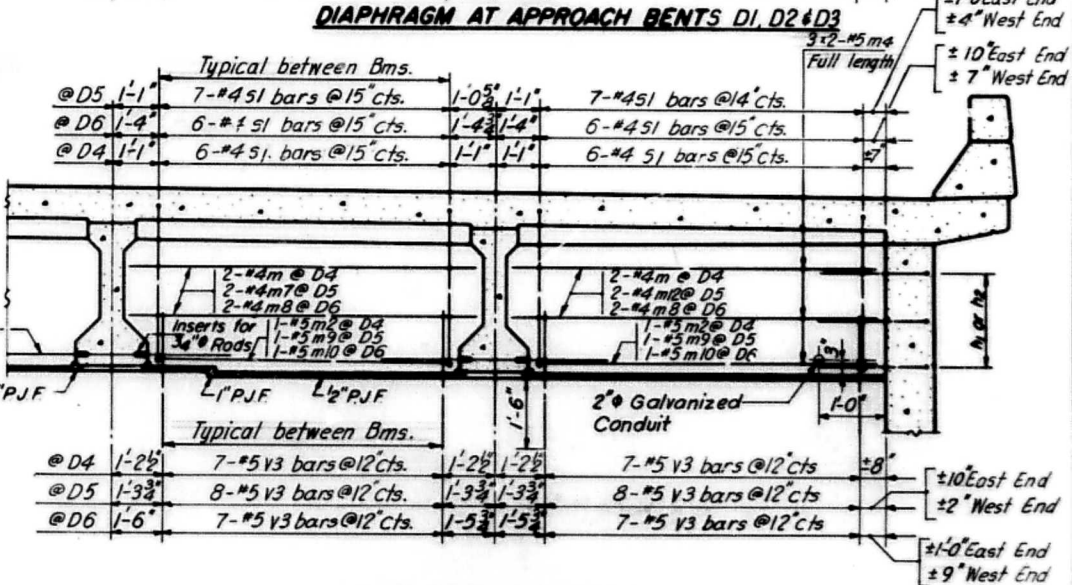 DIAPHRAGM AT APPROACH BENTS D1, D2 & D3
±4" West End
3x2-#5 m4
Full length
±10" East End
±7" West End
Typical between Bms.
@ D5 1'-1" 7-#4 S1 bars @ 15" cts. 1'-0 5/8" 1'-1" 7-#4 S1 bars @ 14" cts.
@ D6 1'-4" 6-#4 S1 bars @ 15" cts. 1'-4 3/4" 1'-4" 6-#4 S1 bars @ 15" cts.
@ D4 1'-1" 6-#4 S1. bars @ 15" cts. 1'-1" 1'-1" 6-#4 S1 bars @ 15" cts. ±7"
2-#4m @ D4
2-#4m7 @ D5
2-#4m8 @ D6
2-#4m @ D4
2-#4m12 @ D5
2-#4m8 @ D6
Inserts for
3/4"Φ Rods
1-#5m2 @ D4
1-#5m9 @ D5
1-#5m10 @ D6
1-#5m2 @ D4
1-#5m9 @ D5
1-#5m10 @ D6
h1 or h2
3"
"P.J.F.
1" P.J.F.
1/2" P.J.F.
1'-6"
2"Φ Galvanized
Conduit
1'-0"
Typical between Bms.
@ D4 1'-2 1/2" 7-#5 v3 bars @ 12" cts. 1'-2 1/2" 1'-2 1/2" 7-#5 v3 bars @ 12" cts ±8"
@ D5 1'-3 3/4" 8-#5 v3 bars @ 12" cts. 1'-3 3/4" 1'-3 3/4" 8-#5 v3 bars @ 12" cts
@ D6 1'-6" 7-#5 v3 bars @ 12" cts. 1'-5 3/4" 1'-5 3/4" 7-#5 v3 bars @ 12" cts
±10" East End
±2" West End
±1'-0" East End
±9" West End